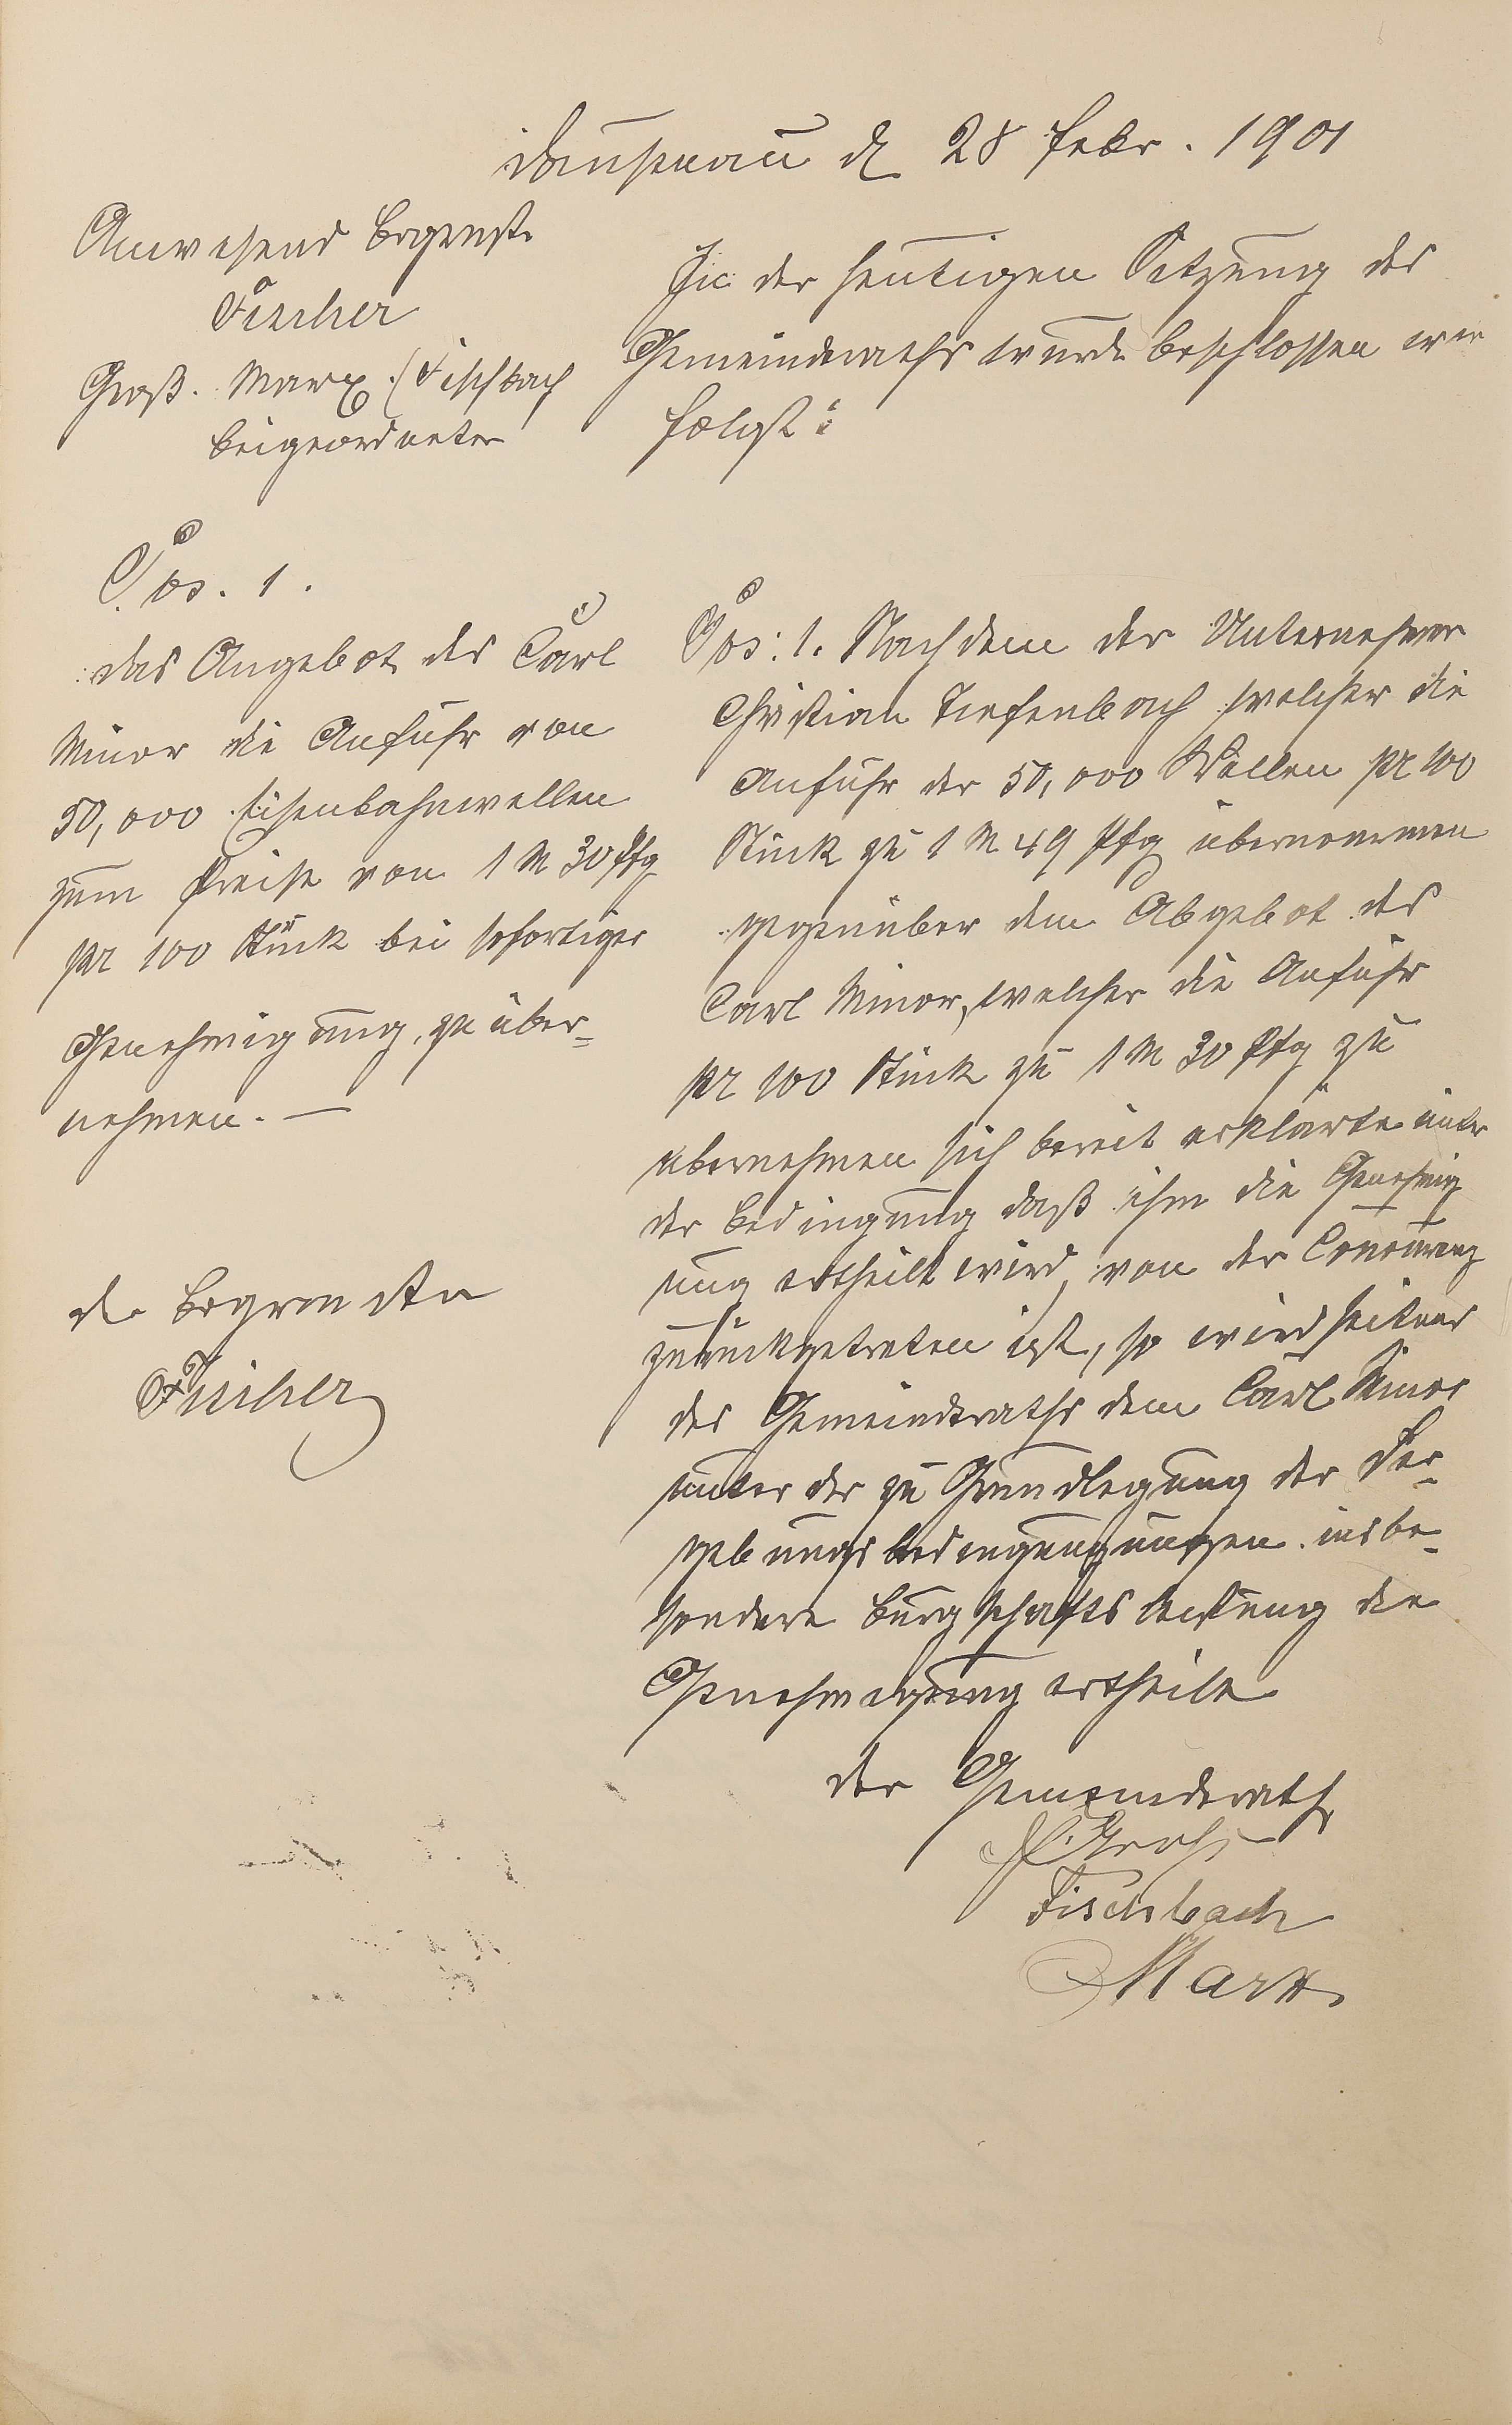 Dausenau d 28 Febr. 1901
Anwesend Bürgermstr
Fischer
Groß. Marx (Fischbach
Beigeordneter
In der heutigen Sitzung des
Gemeinderaths wurde beschlossen wie
folgt:
Pos. 1.
das Angebot des Carl
Minor die Anfuhr von
50,000 Eisenbahnwellen
zum Preise von 1 M 30 Pfg
pr 100 Stück bei sofortiger
Genehmigung, zu über=
nehmen. —
Fischer
Pos: 1. Nachdem der Unternehmer
Christian Tiefenbach welcher die
Anfuhr der 50,000 Wellen pr 100
Stück zu 1 M 49 Pfg übernommen
gegenüber dem Abgebot des
Carl Minor, welcher die Anfuhr
pr 100 Stück zu 1 M 30 Pfg zu
übernehmen sich bereit erklärte unter
der Bedingung daß ihm die Genehmig
ung ertheilt wird, von der Concurrenz
zurückgetreten ist, so wird seitens
des Gemeinderaths dem Carl Minor
unter der zu Grundlegung der Ver=
gebungsbedingungungen insbe=
sondere Burgschaftsleistung die
Genehmigung ertheilt
der Gemeinderath
Groß
Fischbach
Marx